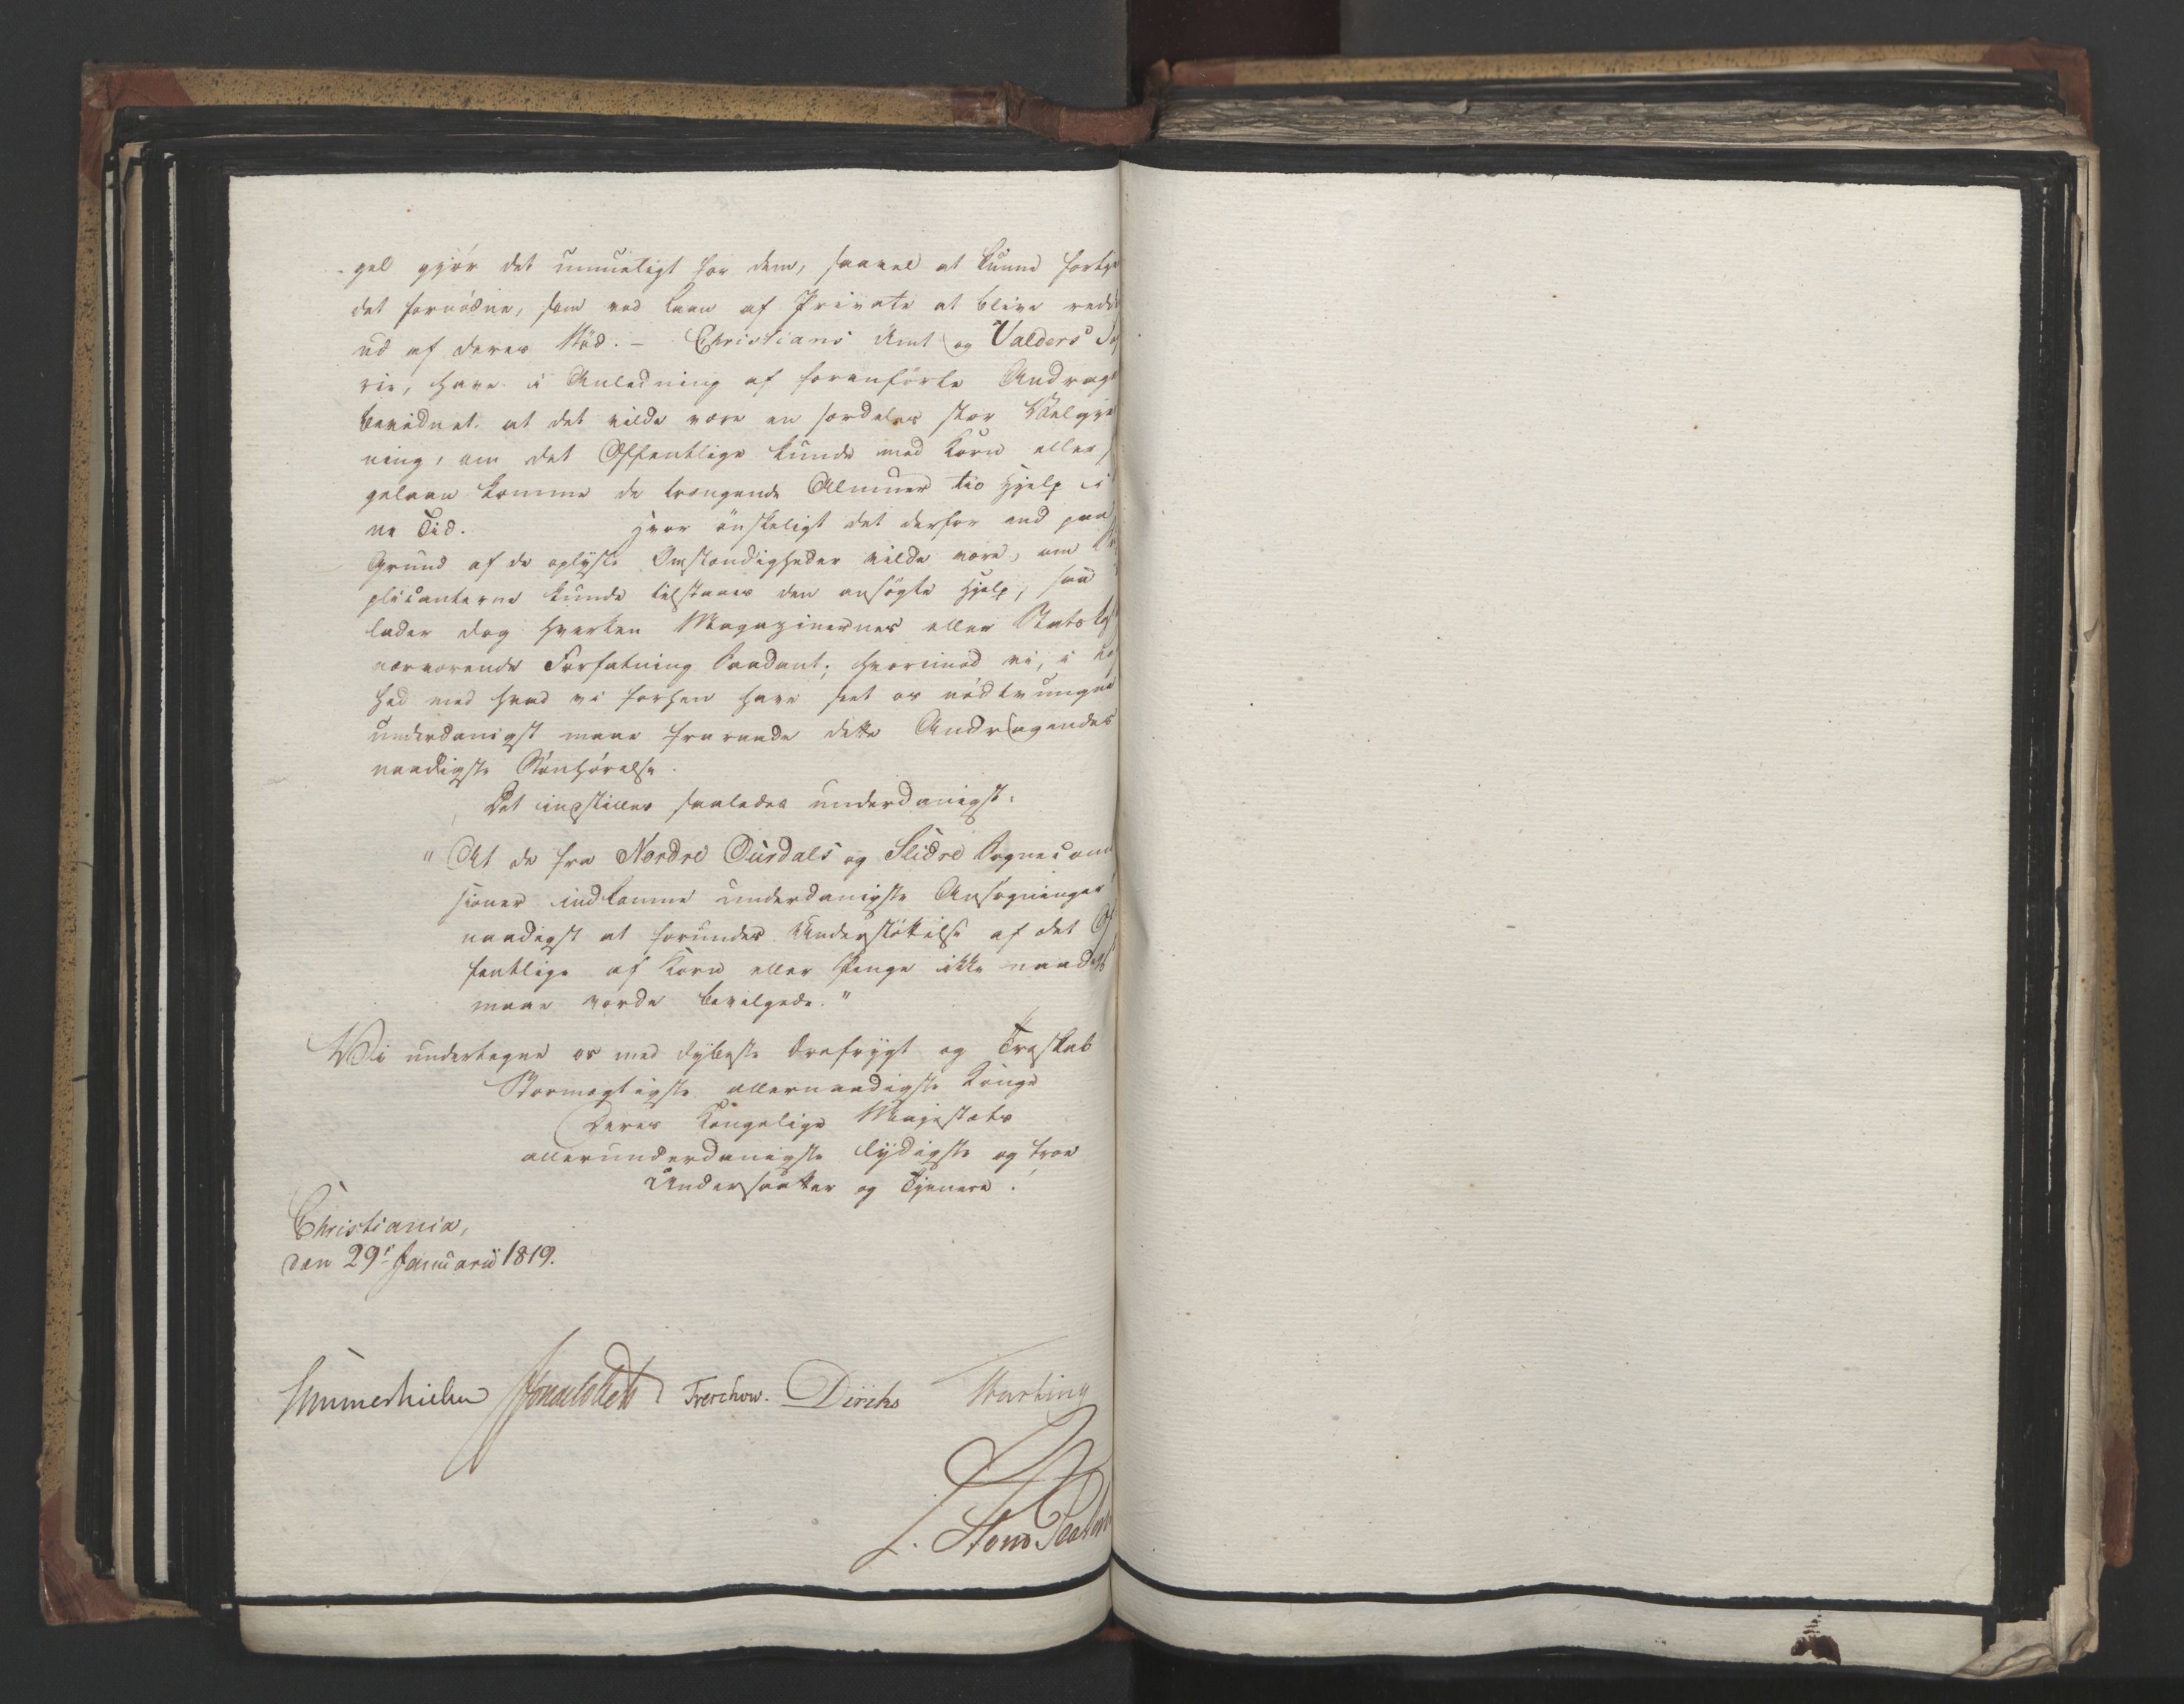 gel gjør det umueligt for dem, saavel at kunne
det fornødne, som ved Laan af Private at blive
ud af deres Nød. – Christians Amt og Valders
rie, have i Anledning af foranførte
bevidnet, at det vilde være en særdeles stor
ning, om det Offentlige kunde med Korn eller
gelaan komme de trængende Almuer til Hjelp i
ne Tid. Hvor ønskeligt det derfor end paa
Grund af de oplyste Omstændigheder vilde være, om
plicanterne kunde tilstaaes den ansøgte Hjelp, saa
lader dog hverken Magazinernes eller Stats
nærværende Forfatning saadant; hvorimod vi, i
hed med hvad vi forhen have seet os nødtvungne
underdanigst maae fraraade dette Andragendes
naadigste Bønhørelse.
Det indstilles saaledes underdanigst:
"At de fra Nordre Ourdals og Slidre
sioner indkomne underdanigste Ansøgninger
naadigst at forundes Understøttelse af det
fentlige af Korn eller Penge ikke naadigst
maae vorde bevilgede."
Vi undertegne os med dybeste Ærefrygt og Troskab
Stormægtigste allernaadigste Konge
Deres Kongelige Majestæts
allerunderdanigste lydigste og troe
Undersaatter og Tjenere.
Christiania,
den 29de Januarii 1819.
Sommerhielm Treschow. Diriks Hartung